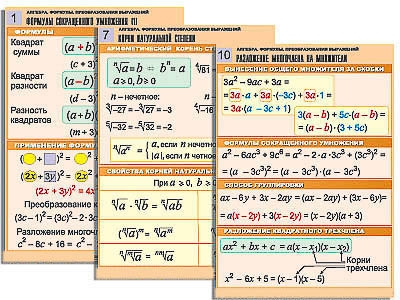 1
АЛГЕБРА. ФОРМУЛЫ ПРЕОБРАЗОВАНИЯ ВЫРАЖЕНИЙ
ФОРМУЛЫ СОКРАЩЕННОГО УМНОЖЕНИЯ (1)
ФОРМУЛЫ
Квадрат
суммы
(a + b)
(c + 3)
Квадрат
разности
(a – b)
(d – 3)
Разность
квадратов
(a + b)
(m + 3)
ПРИМЕНЕНИЕ ФОРМУЛ
(2x + 3y)² =
(2x + 3y)² = 4x
(3c – 1)² = (3c)² – 2·3c
c² – 8c + 16 = c²
7
АЛГЕБРА. ФОРМУЛЫ ПРЕОБРАЗОВАНИЯ ВЫРАЖЕНИЙ
КОРНИ НАТУРАЛЬНОЙ СТЕПЕНИ
АРИФМЕТИЧЕСКИЙ КОРЕНЬ
ⁿ√a = b ⇔ bⁿ = a
a ≥ 0, b ≥ 0
⁴√81
n – нечетное:
³√–27 = –³√27 = –3
⁵√–32 = –⁵√32 = –2
ⁿ√aⁿ = { a, если n нечетное
|a|, если n четное
СВОЙСТВА КОРНЕЙ
При a ≥ 0, b
ⁿ√a · ⁿ√b = ⁿ√ab
(ⁿ√a)ᵐ = ⁿ√aᵐ
10
АЛГЕБРА. ФОРМУЛЫ ПРЕОБРАЗОВАНИЯ ВЫРАЖЕНИЙ
РАЗЛОЖЕНИЕ МНОГОЧЛЕНА НА МНОЖИТЕЛИ
ВЫНЕСЕНИЕ ОБЩЕГО МНОЖИТЕЛЯ ЗА СКОБКИ
3a² – 9ac + 3a =
= 3a·a + 3a·(–3c) + 3a·1 =
= 3a·(a – 3c + 1)
3(a – b) + 5c(a – b) =
= (a – b)·(3 + 5c)
ФОРМУЛЫ СОКРАЩЕННОГО УМНОЖЕНИЯ
a² – 6ac³ + 9c⁶ = a² – 2·a·3c³ + (3c³)² =
= (a – 3c³)² = (a – 3c³)·(a – 3c³)
СПОСОБ ГРУППИРОВКИ
ax – 6y + 3x – 2ay = (ax – 2ay) + (3x – 6y) =
= a(x – 2y) + 3(x – 2y) = (x – 2y)(a + 3)
РАЗЛОЖЕНИЕ КВАДРАТНОГО ТРЕХЧЛЕНА
ax² + bx + c = a(x – x₁)(x – x₂)
Корни
трехчлена
x² – 6x + 5 = (x – 1)(x – 5)